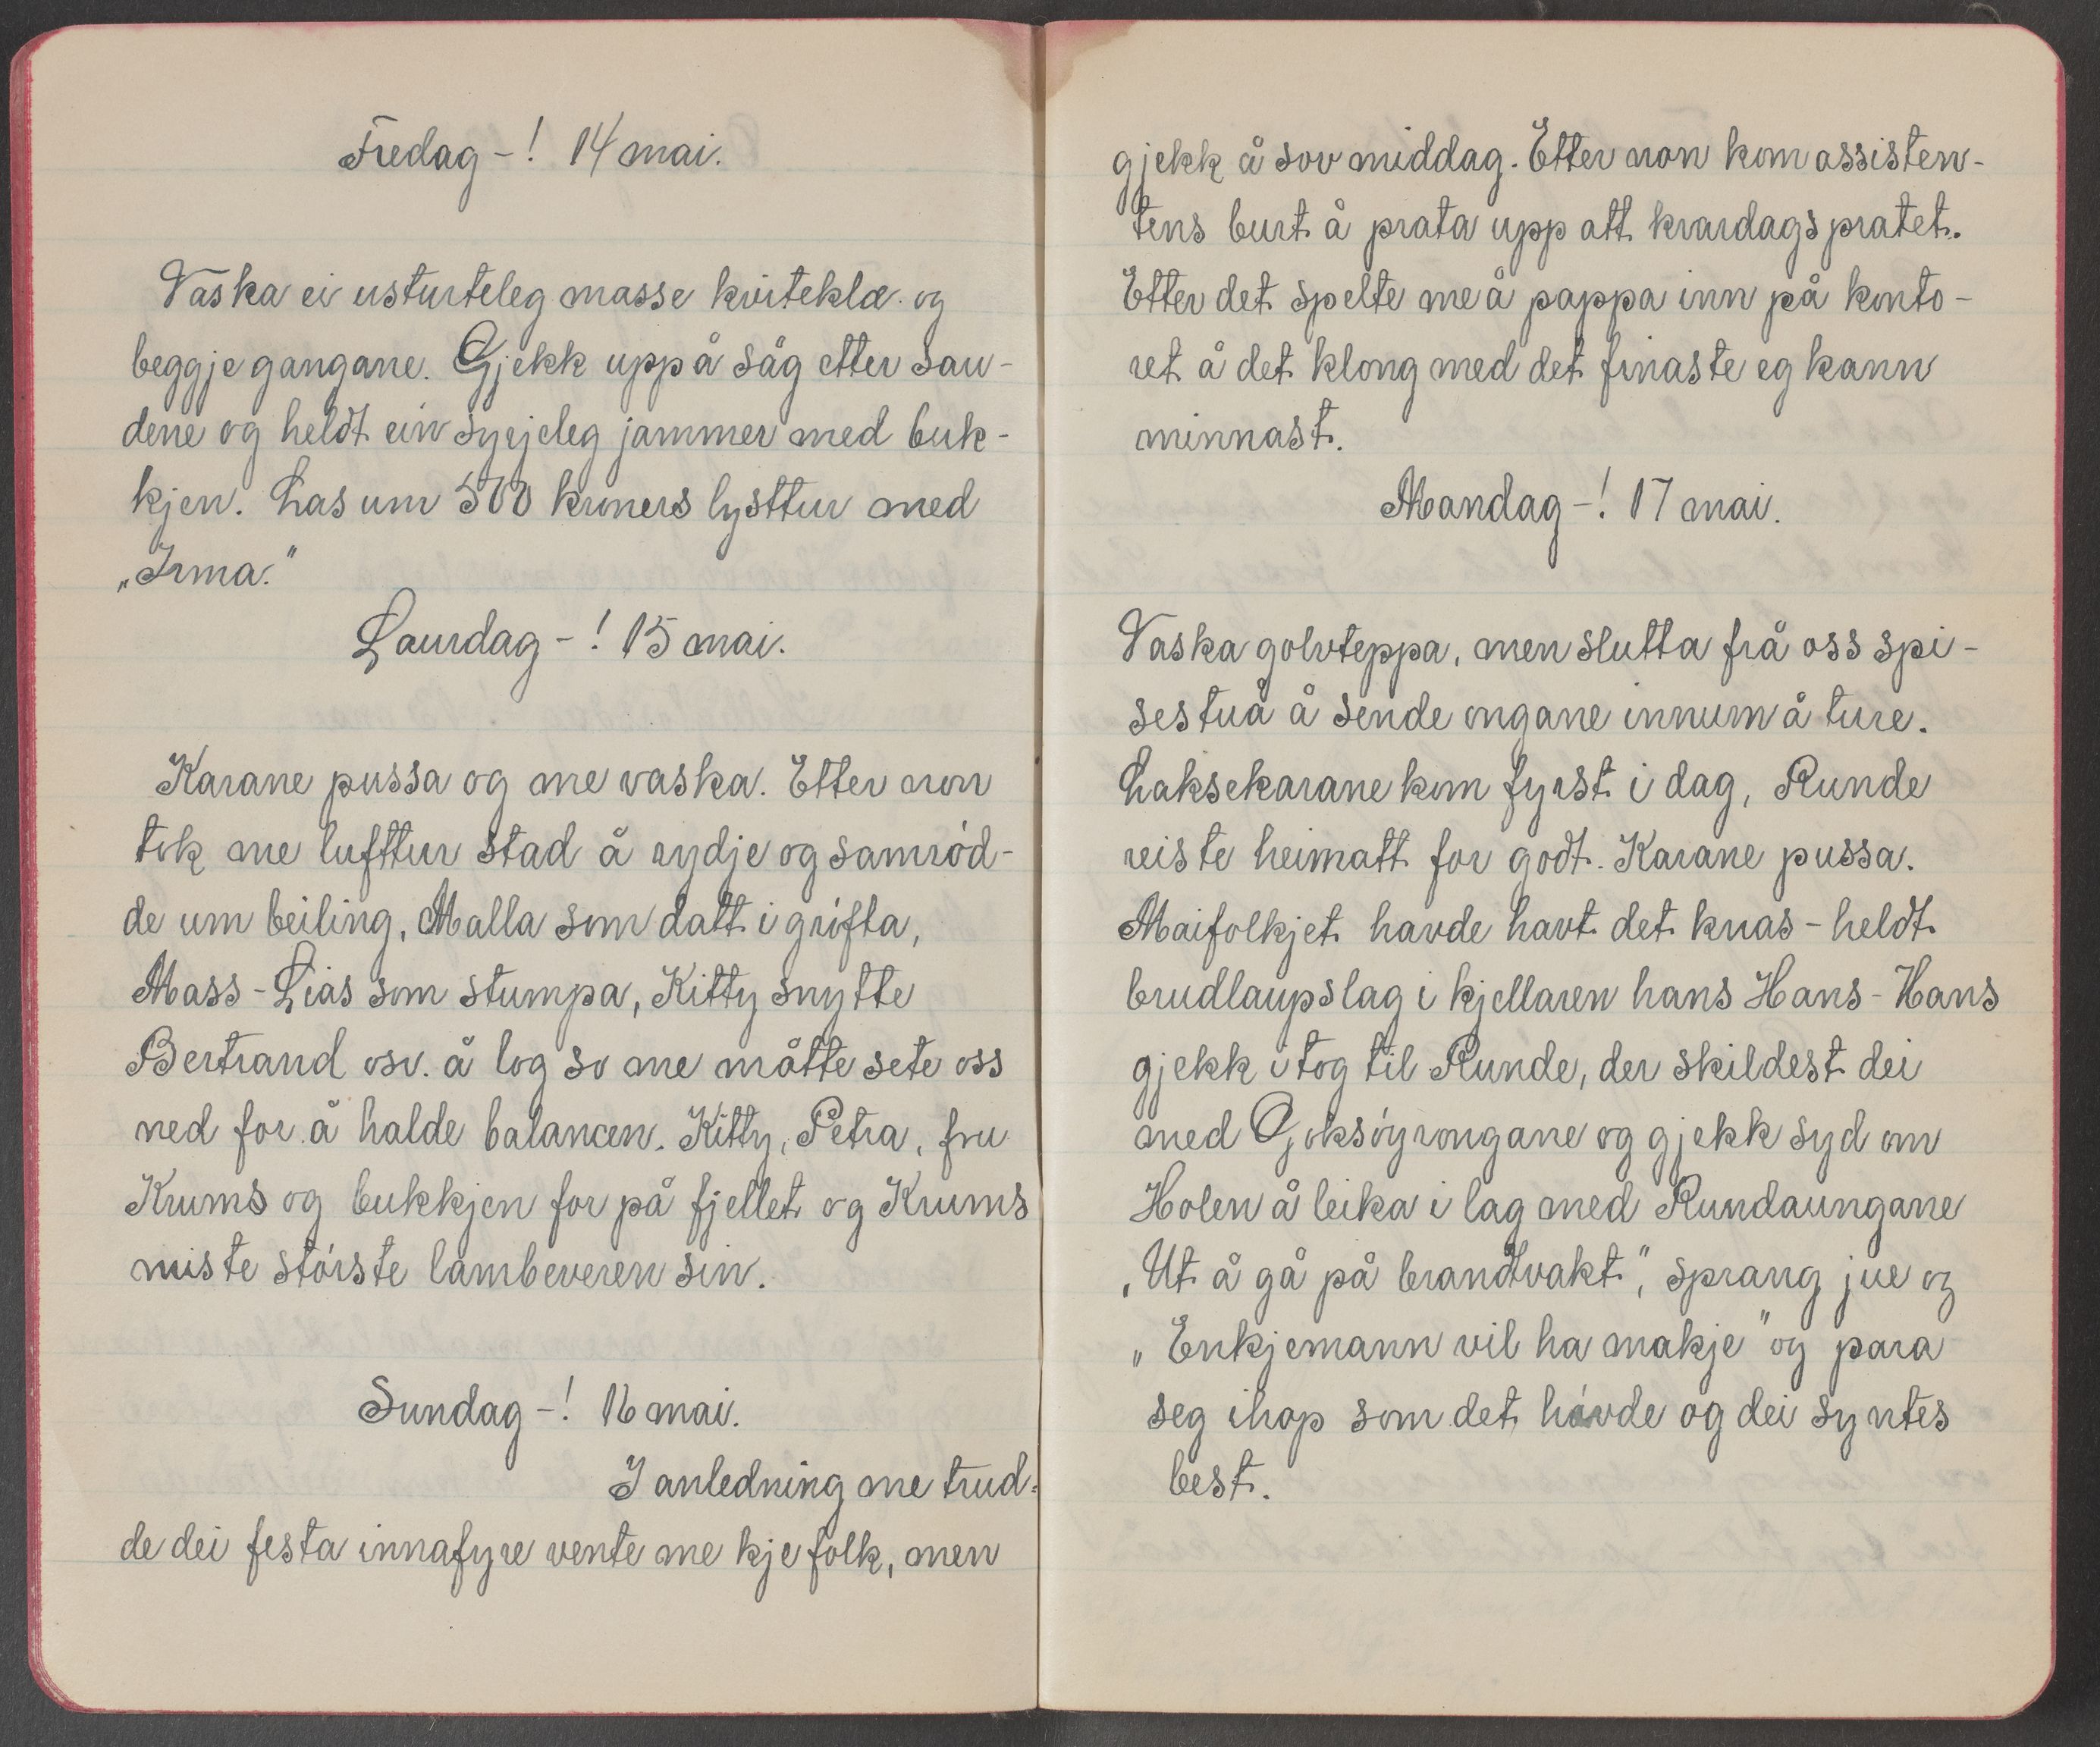 Fredag-! 14 mai.
Vaska ei usturteleg masse kviteklæ og
beggje gangane. Gjekk upp å såg etter sau-
dene og heldt ein syrjeleg jammer med buk-
kjen. Las um 500 kroners lysttur med
„Irma."
Laurdag-! 15 mai.
Karane pussa og me vaska. Etter non
tok me lufttur stad å rydje og samrød-
de um beiling, Malla som datt i grøfta,
Mass-Lias som stumpa, Kitty snytte
Bertrand osv. å log so me måtte sete oss
ned for å halde balancen. Kitty, Petra, fru
Krums og bukkjen for på fjellet og Krums
miste største lambeveren sin.
Sundag-! 16 mai.
I anledning me trud-
de dei festa innafyre vente me kje folk, men
gjekk å sov middag. Etter non kom assisten-
tens burt å prata upp att kvardagspratet.
Etter det spelte me å pappa inn på konto-
ret å det klong med det finaste eg kann
minnast.
Mandag-! 17 mai.
Vaska golvteppa, men slutta frå oss spi-
sestuå å sende ongane innum å ture.
Laksekarane kom fyrst i dag, Runde
reiste heimatt for godt. Karane pussa.
Maifolkjet havde havt det knas-heldt
brudlaupslag i kjellaren hans Hans-Hans
gjekk i tog til Runde, der skildest dei
med Goksøyrongane og gjekk syd om
Holen å leika i lag med Rundaungane
„Ut å gå på brandvakt", sprang jue og
„Enkjemann vil ha makje" og para
seg ihop som det høvde og dei syntes
best.